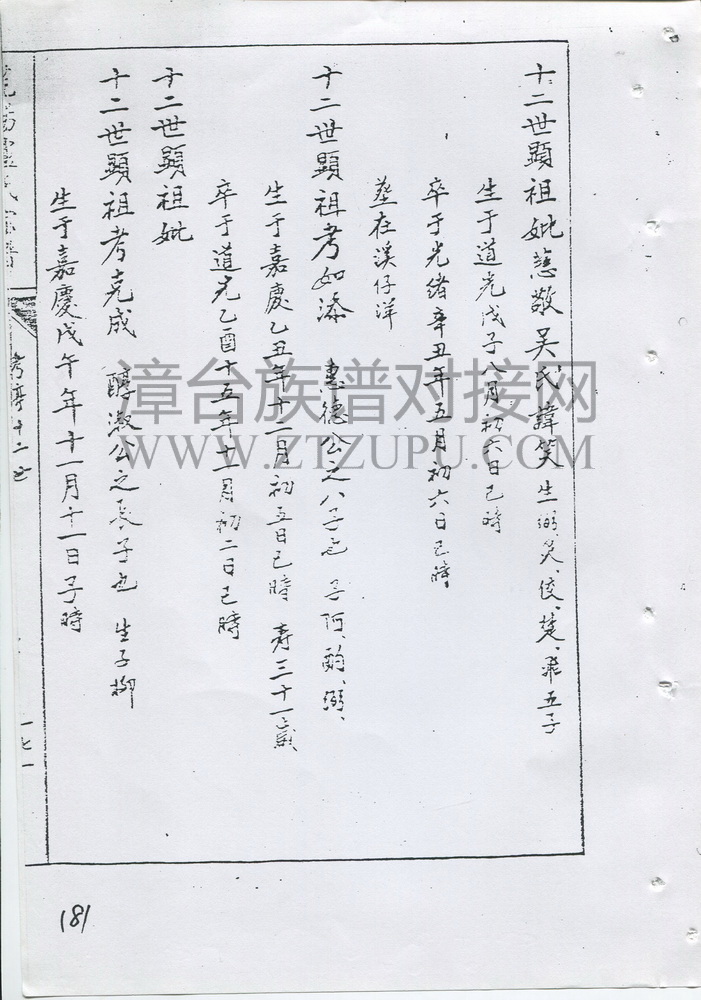 十二世顯祖妣慈敬吳氏諱笑 生 炎、佼、楚、飛五子
生于道光戊子八月初六日巳時
卒于光緒辛丑年五月初六日巳時
塟在溪仔洋
十二世顯祖考如添 惠德公之八子也 子阿、酌、
生于嘉慶乙丑年十二月初五日巳時 壽三十一歲
卒于道光乙酉十五年十一月初二日巳時
十二世顯祖妣
十二世顯祖考克成 醇淑公之長子也 生子柳
生于嘉慶戊午年十一月十一日子時
考亭十二世
一七一
181
漳台族谱对接网
WWW.ZTZUPU.COM